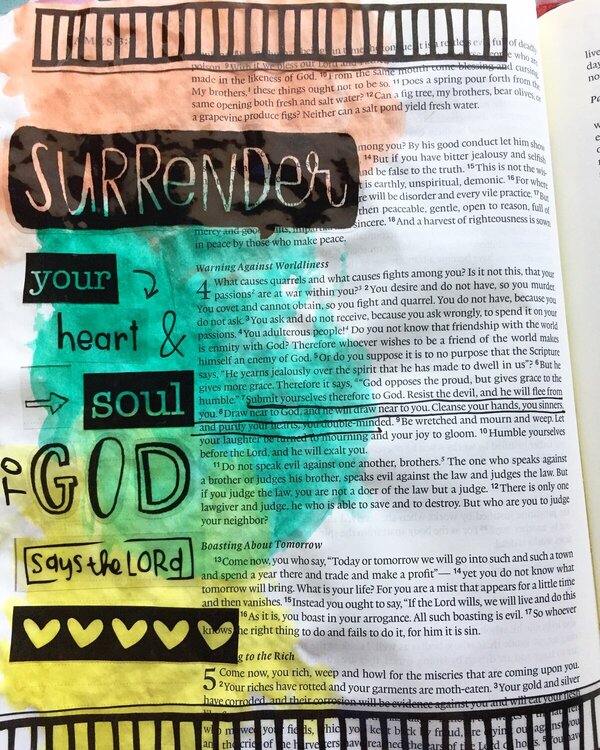 JAMES 3:
it is a restless evil, full of deadly
poison. ⁹With it we bless our Lord and people who are
made in the likeness of God. ¹⁰From the same mouth come blessing and cursing.
My brothers,¹ these things ought not to be so. ¹¹Does a spring pour forth from the
same opening both fresh and salt water? ¹²Can a fig tree, my brothers, bear olives, or
a grapevine produce figs? Neither can a salt pond yield fresh water.
SURRENDER
among you? By his good conduct let him show
¹⁴But if you have bitter jealousy and selfish
and be false to the truth. ¹⁵This is not the wis-
is earthly, unspiritual, demonic. ¹⁶For where
re will be disorder and every vile practice. ¹⁷But
then peaceable, gentle, open to reason, full of
sincere. ¹⁸And a harvest of righteousness is sown
mercy and good
in peace by those who make peace.
your
heart &
soul
TO GOD
says the LORD
Warning Against Worldliness
4 What causes quarrels and what causes fights among you? Is it not this, that your
passions² are at war within you?³ ²You desire and do not have, so you murder.
You covet and cannot obtain, so you fight and quarrel. You do not have, because you
do not ask. ³You ask and do not receive, because you ask wrongly, to spend it on your
passions. ⁴You adulterous people!⁴ Do you not know that friendship with the world
is enmity with God? Therefore whoever wishes to be a friend of the world makes
himself an enemy of God. ⁵Or do you suppose it is to no purpose that the Scripture
says, "He yearns jealously over the spirit that he has made to dwell in us"? ⁶But he
gives more grace. Therefore it says, "God opposes the proud, but gives grace to the
humble." ⁷Submit yourselves therefore to God. Resist the devil, and he will flee from
you. ⁸Draw near to God, and he will draw near to you. Cleanse your hands, you sinners,
and purify your hearts, you double-minded. ⁹Be wretched and mourn and weep. Let
your laughter be turned to mourning and your joy to gloom. ¹⁰Humble yourselves
before the Lord, and he will exalt you.
¹¹Do not speak evil against one another, brothers.⁵ The one who speaks against
a brother or judges his brother, speaks evil against the law and judges the law. But
if you judge the law, you are not a doer of the law but a judge. ¹²There is only one
lawgiver and judge, he who is able to save and to destroy. But who are you to judge
your neighbor?
Boasting About Tomorrow
¹³Come now, you who say, "Today or tomorrow we will go into such and such a town
and spend a year there and trade and make a profit"— ¹⁴yet you do not know what
tomorrow will bring. What is your life? For you are a mist that appears for a little time
and then vanishes. ¹⁵Instead you ought to say, "If the Lord wills, we will live and do this
¹⁶As it is, you boast in your arrogance. All such boasting is evil. ¹⁷So whoever
knows the right thing to do and fails to do it, for him it is sin.
g to the Rich
5 Come now, you rich, weep and howl for the miseries that are coming upon you.
²Your riches have rotted and your garments are moth-eaten. ³Your gold and silver
have corroded, and their corrosion will be evidence against you and will eat your flesh
who mowed your fields, which you kept back by fraud, are crying out against you
and the cries of the harvesters have reached the ears of the Lord